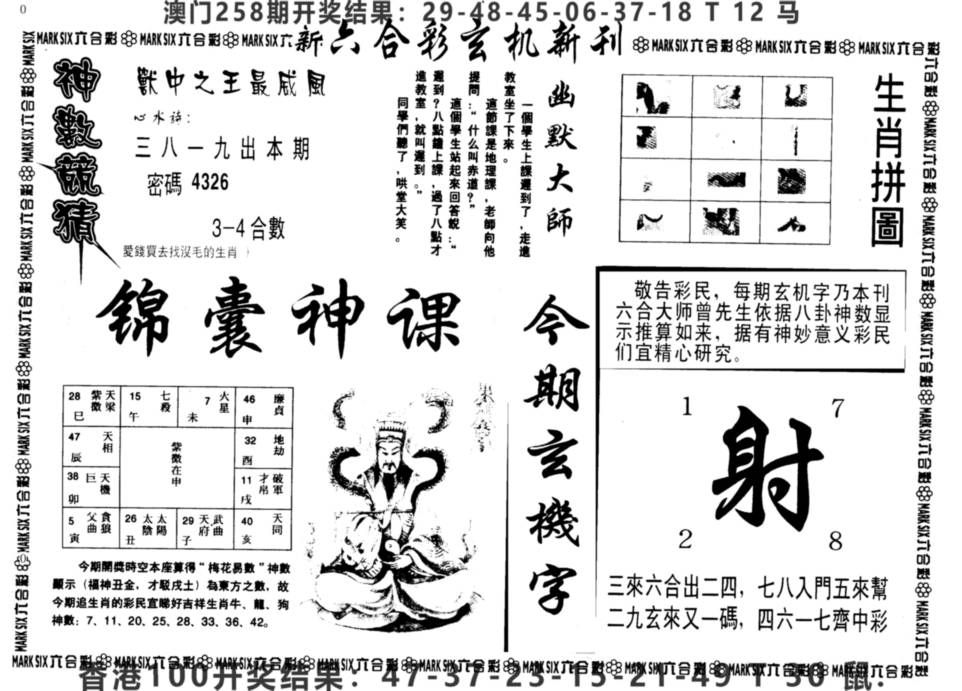 澳门258期开奖结果：29-48-45-06-37-18 T 12 马
0
MARK SIX 六合彩 MARK SIX 六合彩 MARK SIX 六
新六合彩玄机新刊
MARK SIX 六合彩 MARK SIX 六合彩 MARK SIX 六合彩
神數競猜
獸中之王最威風
心水诗：
三八一九出本期
密碼 4326
3-4合數
愛錢買去找沒毛的生肖
幽默大師
一個學生上課遲到了，走進
教室坐了下來。
這節課是地理課，老師向他
提問：“什么叫赤道？”
這個學生站起來回答說：“
遲到？八點鐘上課，過了八點才
進教室，就叫遲到。”
同學們聽了，哄堂大笑。
生肖拼圖
锦囊神课
28 紫微 天梁 巳
15 七殺 午
7 火星 未
46 廉貞 申
47 天相 辰
紫微在申
32 地劫 酉
38 巨 天機 卯
11 才帛 破軍 戌
5 父曲 貪狼 寅
26 太陰 太陽 丑
29 天府 武曲 子
40 天同 亥
今期開獎時空本座算得“梅花易數”神數
顯示（福神丑金，才駁戌土）為東方之數，故
今期追生肖的彩民宜睇好吉祥生肖牛、龍、狗
神數：7、11、20、25、28、33、36、42。
今期玄機字
敬告彩民，每期玄机字乃本刊
六合大师曾先生依据八卦神数显
示推算如来，据有神妙意义彩民
们宜精心研究。
1 7
射
2 8
三來六合出二四，七八入門五來幫
二九玄來又一碼，四六一七齊中彩
MARK SIX 六合彩 MARK SIX 六合彩 MARK SIX 六合彩 MARK SIX 六合彩 MARK SIX 六合彩 MARK SIX 六合彩 MARK SIX 六合彩
香港100开奖结果：47-37-23-15-21-49 T 30 鼠：